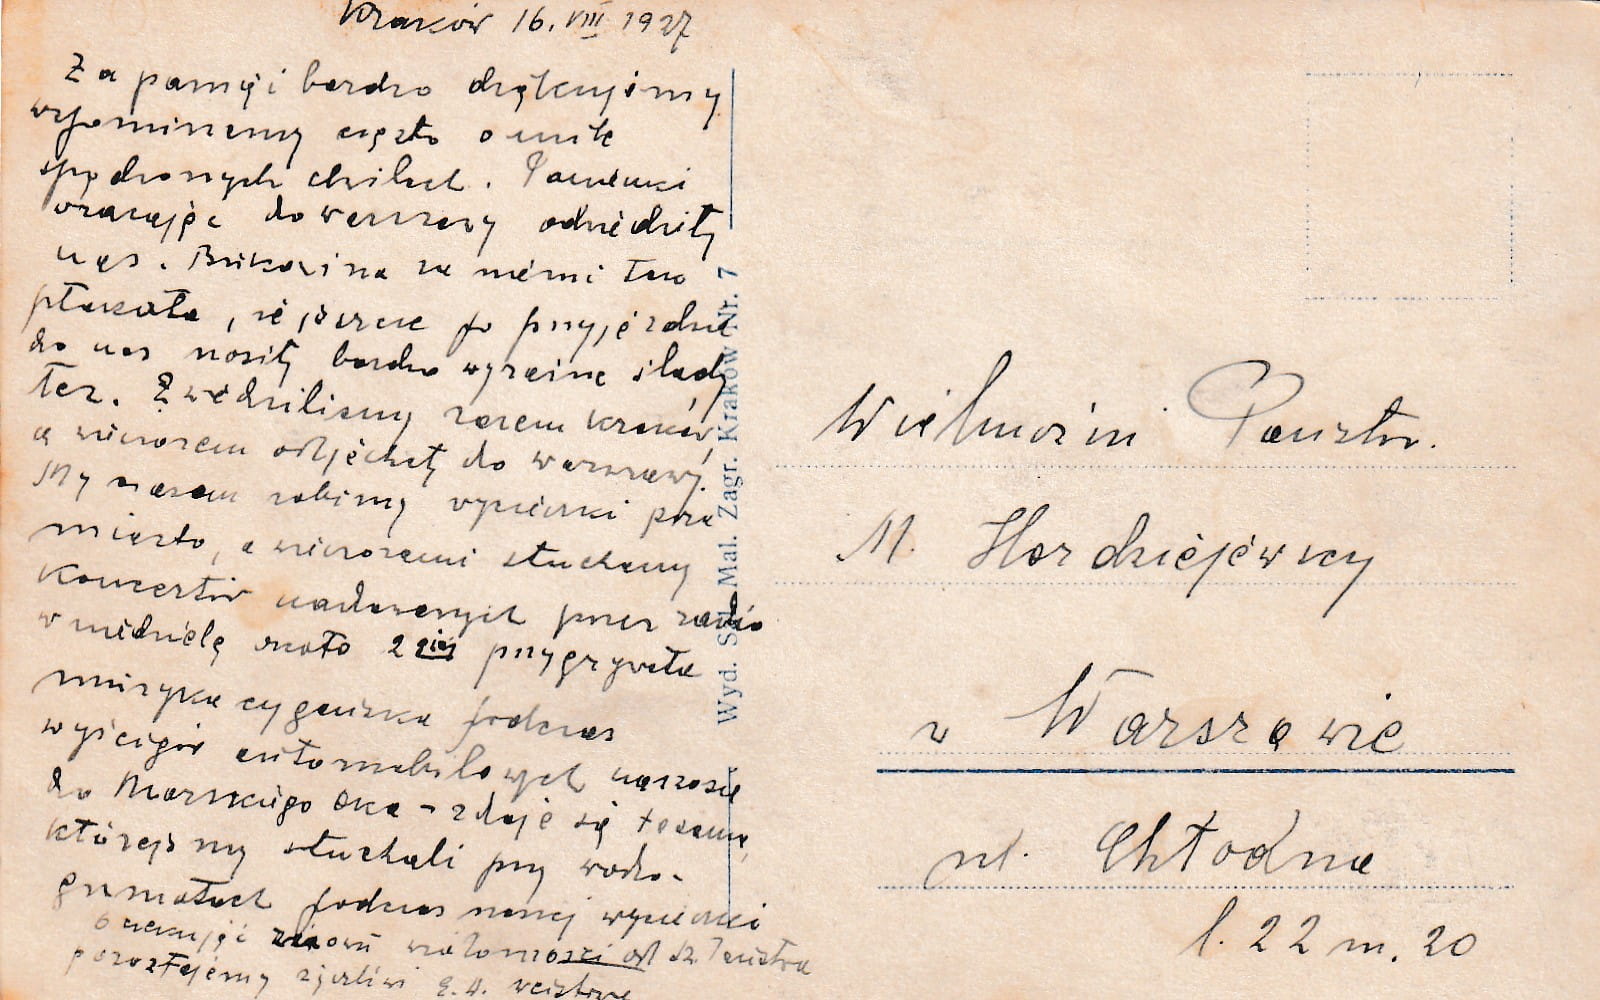 Kraków 16. VIII 1927
Za pamięć bardzo dziękujemy
wspominamy często o mile
spędzonych chwilach. Panienki
wracając do Warszawy odwiedziły
nas. Bukowina za niemi tak
płakała, że jeszcze po przyjeździe
do nas nosiły bardzo wyraźne ślady
łez. Zwiedziliśmy razem Kraków,
a wieczorem odjechały do Warszawy.
My czasem robimy wycieczki poza
miasto, a wieczorami słuchamy
koncertów nadawanych przez radio
w niedzielę około 2giej przygrywała
muzyka cygańska podczas
wyścigów automobilowych naszosie
do Morskiego Oka - zdaje się tesame,
którejśmy słuchali przy wodo-
grzmotach podczas naszej wycieczki
Oczekując znowu wiadomości od Sz. Państwa
pozostajemy życzliwi
Wyd. Sal. Mal. Zagr. Kraków Nr. 7
Wielmożni Państw.
M. Hordziejewscy
w Warszawie
ul. Chłodna
l. 22 m. 20